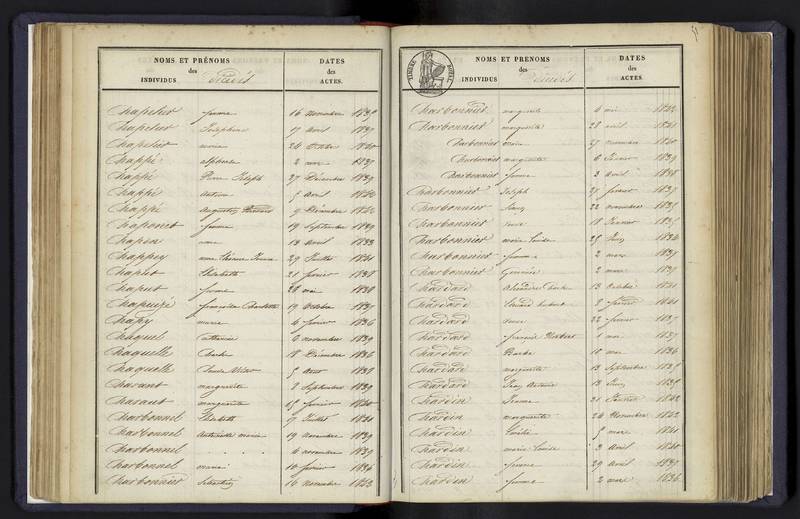 NOMS ET PRÉNOMS
des
INDIVIDUS
Décédés
DATES
des
ACTES.
Chapelut femme 16 Novembre 1839
Chapelut Joséphine 17 Avril 1837
Chapelut marie 24 Octobre 1840
Chappé alphonse 2 mars 1837
Chappé Pierre Joseph 27 Décembre 1839
Chappé 5 Avril
Chappé Augustin 9 Décembre
Chaponet femme 19 Septembre 1839
Chapon 13 Avril 1833
Chappuy 29 Juillet 1841
Chaput Elisabeth 21 février 1838
Chaput femme 28 mai 1838
Chapuizé françoise Charlotte 19 Octobre 1837
Chapy marie 4 février 1836
Chaquel Catherine 6 novembre 1839
Chaquelle Charles 18 Décembre 1836
Chaquelle 5 Aout 1838
Charant marguerite 2 Septembre 1839
Charaut marguerite 15 février 1840
Charbonnel Elisabeth 7 Juillet 1841
Charbonnel Antoinette marie 19 novembre 1839
Charbonnel . . . . 4 novembre 1839
Charbonnel marie 10 février 1834
Charbonnier 16 novembre 1842
NOMS ET PRÉNOMS
des
INDIVIDUS
Décédés
DATES
des
ACTES.
TIMBRE ROYAL
Charbonnier marguerite 4 mai
Charbonnier marguerite 28 avril 1841
Charbonnier marie 27 novembre 1840
Charbonnier marguerite 6 février 1839
Charbonnier femme 3 Avril 1838
Charbonnier Joseph 27 février 1837
Charbonnier 22 novembre 1835
Charbonnier 18 février 1835
Charbonnier marie Louise 25 Juin 1834
Charbonnier femme 2 mars 1837
Charbonnier 2 mars 1837
Chardard 13 Octobre 1841
Chardard 8 février 1841
Chardard 22 février 1837
Chardard françois 1 mai 1837
Chardard Barbe 10 mai 1836
Chardard marguerite 13 Septembre 1835
Chardard Jean Antoine 13 Juin 1835
Chardin femme 21 Janvier 1842
Chardin marguerite 24 Novembre 1842
Chardin Emélie 5 mars 1841
Chardin marie Louise 2 Avril 1840
Chardin femme 29 Avril 1837
Chardin femme 2 mars 1836